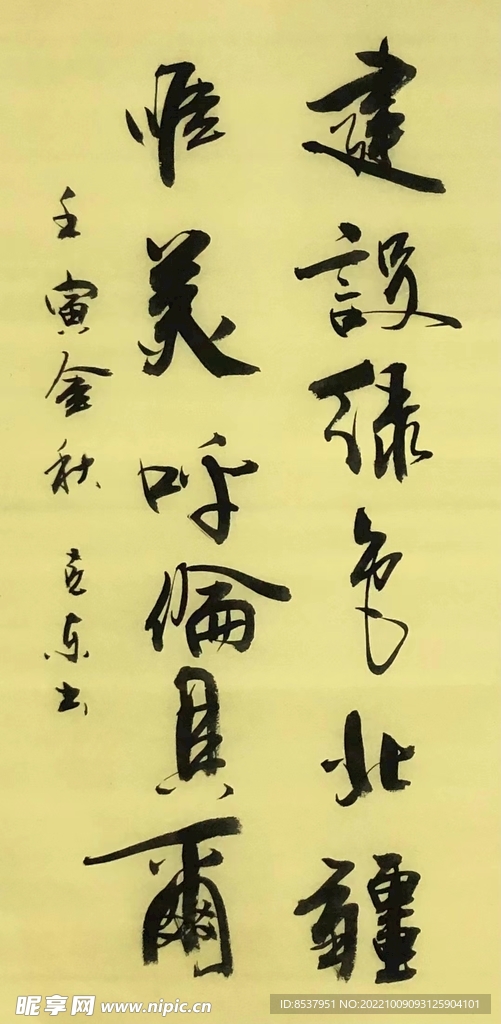 建設绿色北疆
唯美呼倫貝爾
壬寅金秋 克东书
昵享网 www.nipic.cn
ID:8537951 NO:20221009093125904101